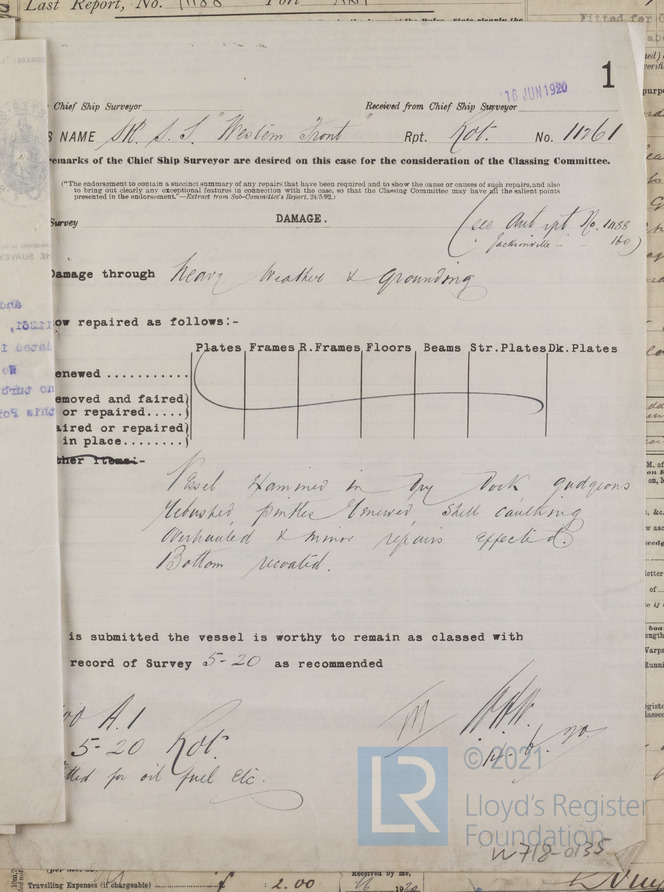 Last Report, No. 1188 Port
1
16 JUN 1920
Chief Ship Surveyor Received from Chief Ship Surveyor
S NAME S.S. "Western Front" Rpt. Rot. No. 11261
emarks of the Chief Ship Surveyor are desired on this case for the consideration of the Classing Committee.
("The endorsement to contain a succinct summary of any repairs that have been required and to show the cause or causes of such repairs, and also
to bring out clearly any exceptional features in connection with the case, so that the Classing Committee may have all the salient points
presented in the endorsement."—Extract from Sub-Committee's Report, 24/5/92.)
Survey DAMAGE. (see Ant rpt No. 1188
Jacksonville - 160)
Damage through heavy weather & grounding
ow repaired as follows:-
Plates Frames R.Frames Floors Beams Str.Plates Dk.Plates
enewed ...........
emoved and faired
or repaired.....
aired or repaired
in place........
ther items:-
Vessel examined in dry dock gudgeons
rebushed pintles renewed, shell caulking
overhauled & minor repairs effected.
Bottom recoated.
is submitted the vessel is worthy to remain as classed with
record of Survey 5-20 as recommended
A.1
5-20 Rot.
tted for oil fuel etc.
LR © 2021
Lloyd's Register
Foundation
W718-0135
Travelling Expenses (if chargeable) £ 2.00 Received by me,